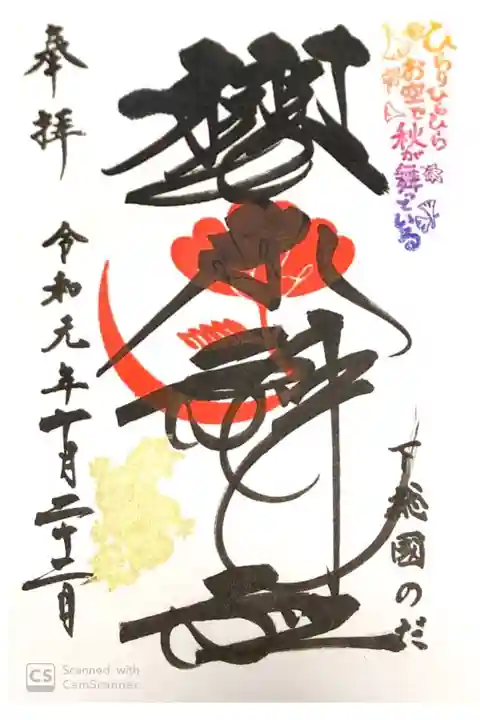 ひらりひらひら
お空で
秋が舞っている
下総國のだ
櫻木神社
奉拝
令和元年十月二十二日
CS
Scanned with
CamScanner